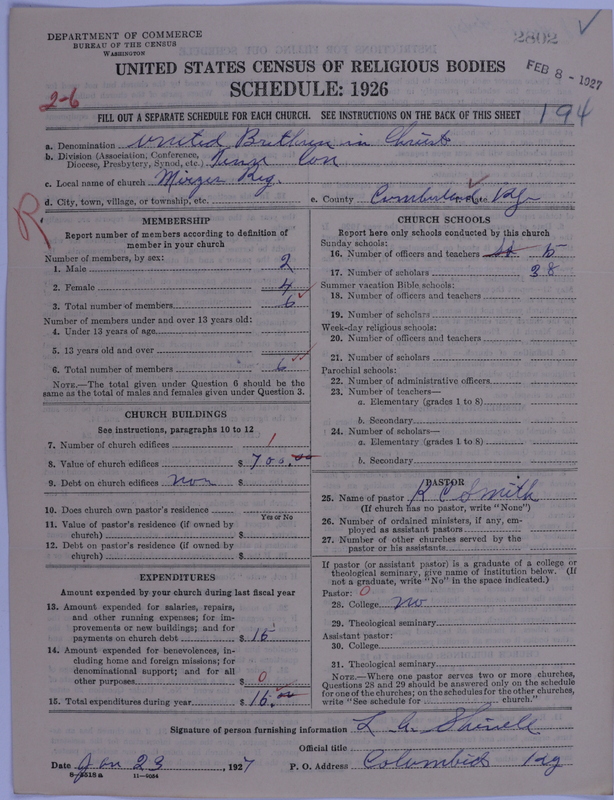 DEPARTMENT OF COMMERCE
BUREAU OF THE CENSUS
WASHINGTON
2802
UNITED STATES CENSUS OF RELIGIOUS BODIES
FEB 8 - 1927
SCHEDULE: 1926
2-6
194
FILL OUT A SEPARATE SCHEDULE FOR EACH CHURCH. SEE INSTRUCTIONS ON THE BACK OF THIS SHEET
a. Denomination United Brethren in Christ
b. Division (Association, Conference, Diocese, Presbytery, Synod, etc.) Con
c. Local name of church
d. City, town, village, or township, etc.
e. County Cumberland State Ky
R
MEMBERSHIP
Report number of members according to definition of member in your church
Number of members, by sex:
1. Male 2
2. Female 4
3. Total number of members 6
Number of members under and over 13 years old:
4. Under 13 years of age
5. 13 years old and over
6. Total number of members 6
NOTE.—The total given under Question 6 should be the same as the total of males and females given under Question 3.
CHURCH BUILDINGS
See instructions, paragraphs 10 to 12
7. Number of church edifices 1
8. Value of church edifices $ 700.00
9. Debt on church edifices non $
10. Does church own pastor's residence
Yes or No
11. Value of pastor's residence (if owned by church) $
12. Debt on pastor's residence (if owned by church) $
EXPENDITURES
Amount expended by your church during last fiscal year
13. Amount expended for salaries, repairs, and other running expenses; for improvements or new buildings; and for payments on church debt $ 15
14. Amount expended for benevolences, including home and foreign missions; for denominational support; and for all other purposes $ 0
15. Total expenditures during year $ 15
CHURCH SCHOOLS
Report here only schools conducted by this church
Sunday schools:
16. Number of officers and teachers 5
17. Number of scholars 38
Summer vacation Bible schools:
18. Number of officers and teachers
19. Number of scholars
Week-day religious schools:
20. Number of officers and teachers
21. Number of scholars
Parochial schools:
22. Number of administrative officers
23. Number of teachers—
a. Elementary (grades 1 to 8)
b. Secondary
24. Number of scholars—
a. Elementary (grades 1 to 8)
b. Secondary
PASTOR
25. Name of pastor R C Smith
(If church has no pastor, write "None")
26. Number of ordained ministers, if any, employed as assistant pastors
27. Number of other churches served by the pastor or his assistants
If pastor (or assistant pastor) is a graduate of a college or theological seminary, give name of institution below. (If not a graduate, write "No" in the space indicated.)
Pastor: 0
28. College no
29. Theological seminary
Assistant pastor:
30. College
31. Theological seminary
NOTE.—Where one pastor serves two or more churches, Questions 28 and 29 should be answered only on the schedule for one of the churches; on the schedules for the other churches, write "See schedule for church."
Signature of person furnishing information
Official title
Date Jan 23, 1927
P. O. Address Columbia Ky
8-5518 a 11-9054